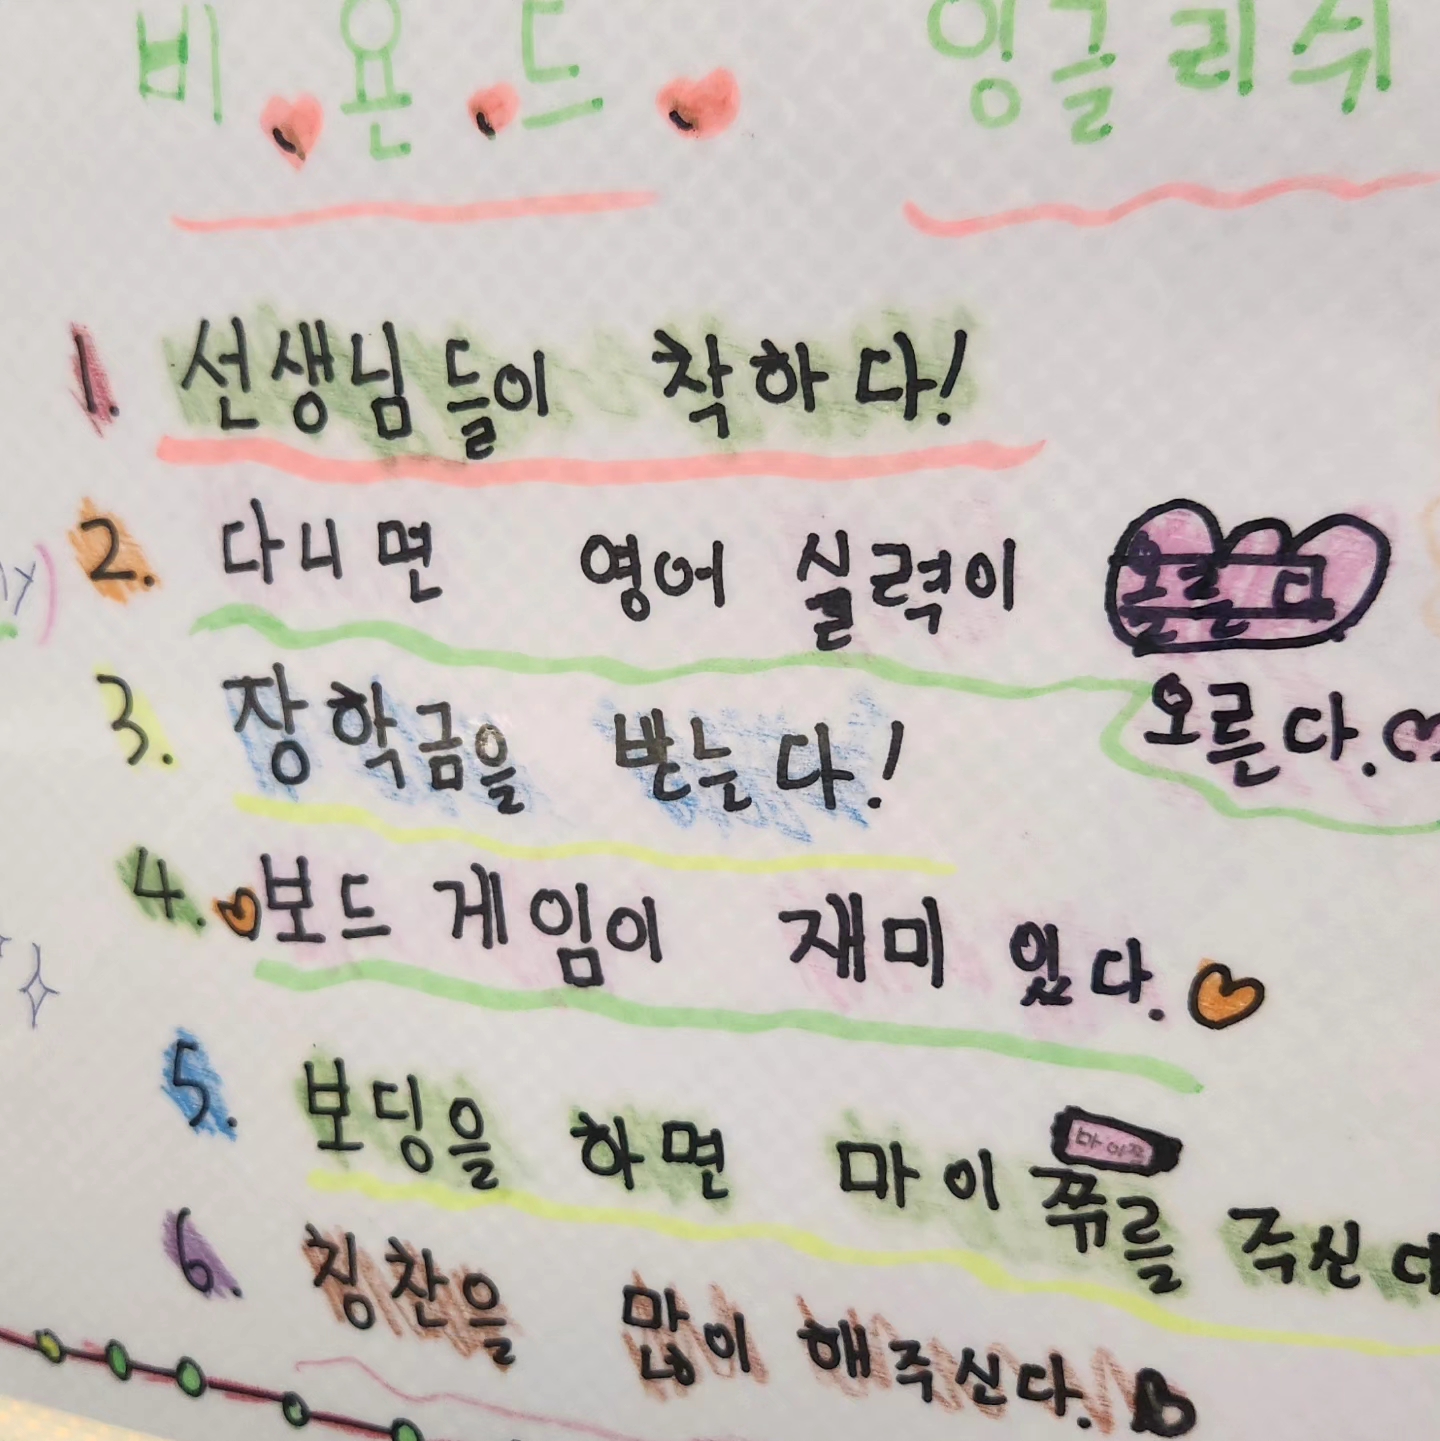 비욘드 잉글리쉬
1. 선생님들이 착하다!
2. 다니면 영어 실력이
오른다.
3. 장학금을 받는다!
4. 보드 게임이 재미 있다.
5. 보딩을 하면 마이쮸를 주신다
마이쮸
6. 칭찬을 많이 해주신다.